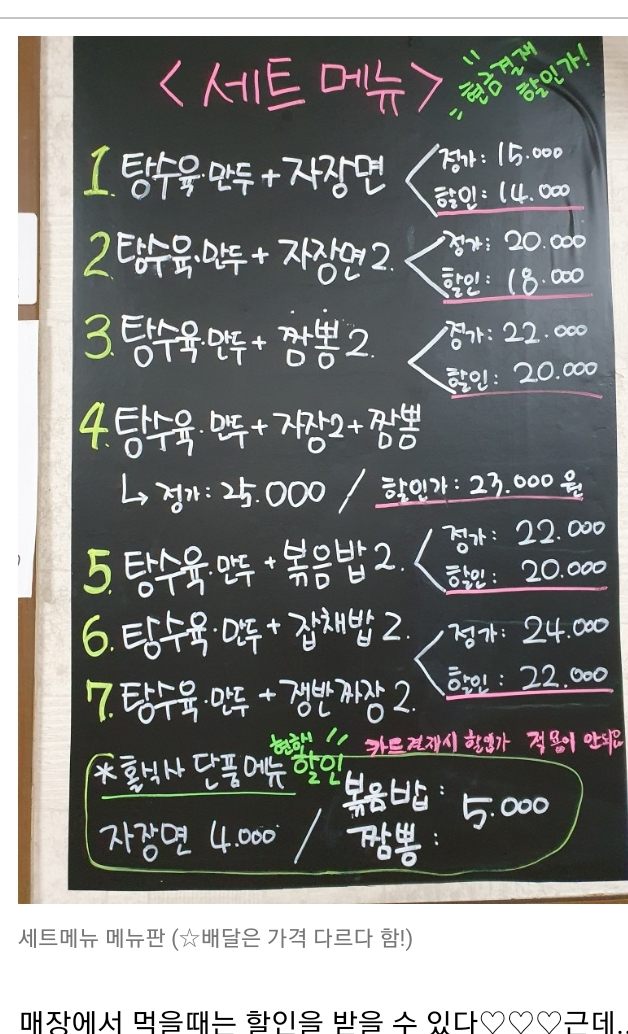 <세트 메뉴>
"현금결재 할인가!"
1. 탕수육·만두+자장면
정가: 15.000
할인: 14.000
2. 탕수육·만두+ 자장면 2.
정가: 20.000
할인: 18.000
3. 탕수육·만두+ 짬뽕 2.
정가: 22.000
할인: 20.000
4. 탕수육·만두+자장2+짬뽕
↳ 정가: 25.000 / 할인가: 23.000 원
5. 탕수육·만두+볶음밥 2.
정가: 22.000
할인: 20.000
6. 탕수육·만두 + 잡채밥 2.
7. 탕수육·만두 + 쟁반짜장 2.
정가: 24.000
할인: 22.000
카드결재시 할인가 적용이 안되요
*홀식사 단품메뉴 할인
자장면 4.000 / 볶음밥: 짬뽕: 5.000
세트메뉴 메뉴판 (☆배달은 가격 다르다 함!)
매장에서 먹을때는 할인을 받을 수 있다♡♡♡근데..